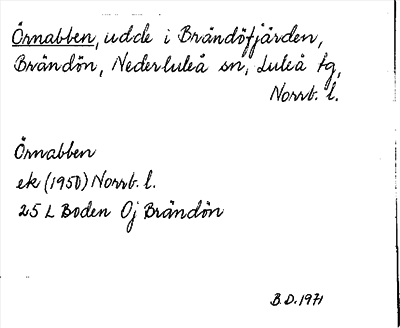 Örnabben, udde i Brändöfjärden,
Brändön, Nederluleå sn, Luleå tg,
Norrb. l.
Örnabben
ek (1950) Norrb. l.
25 L Boden Oj Brändön
B.D. 1971